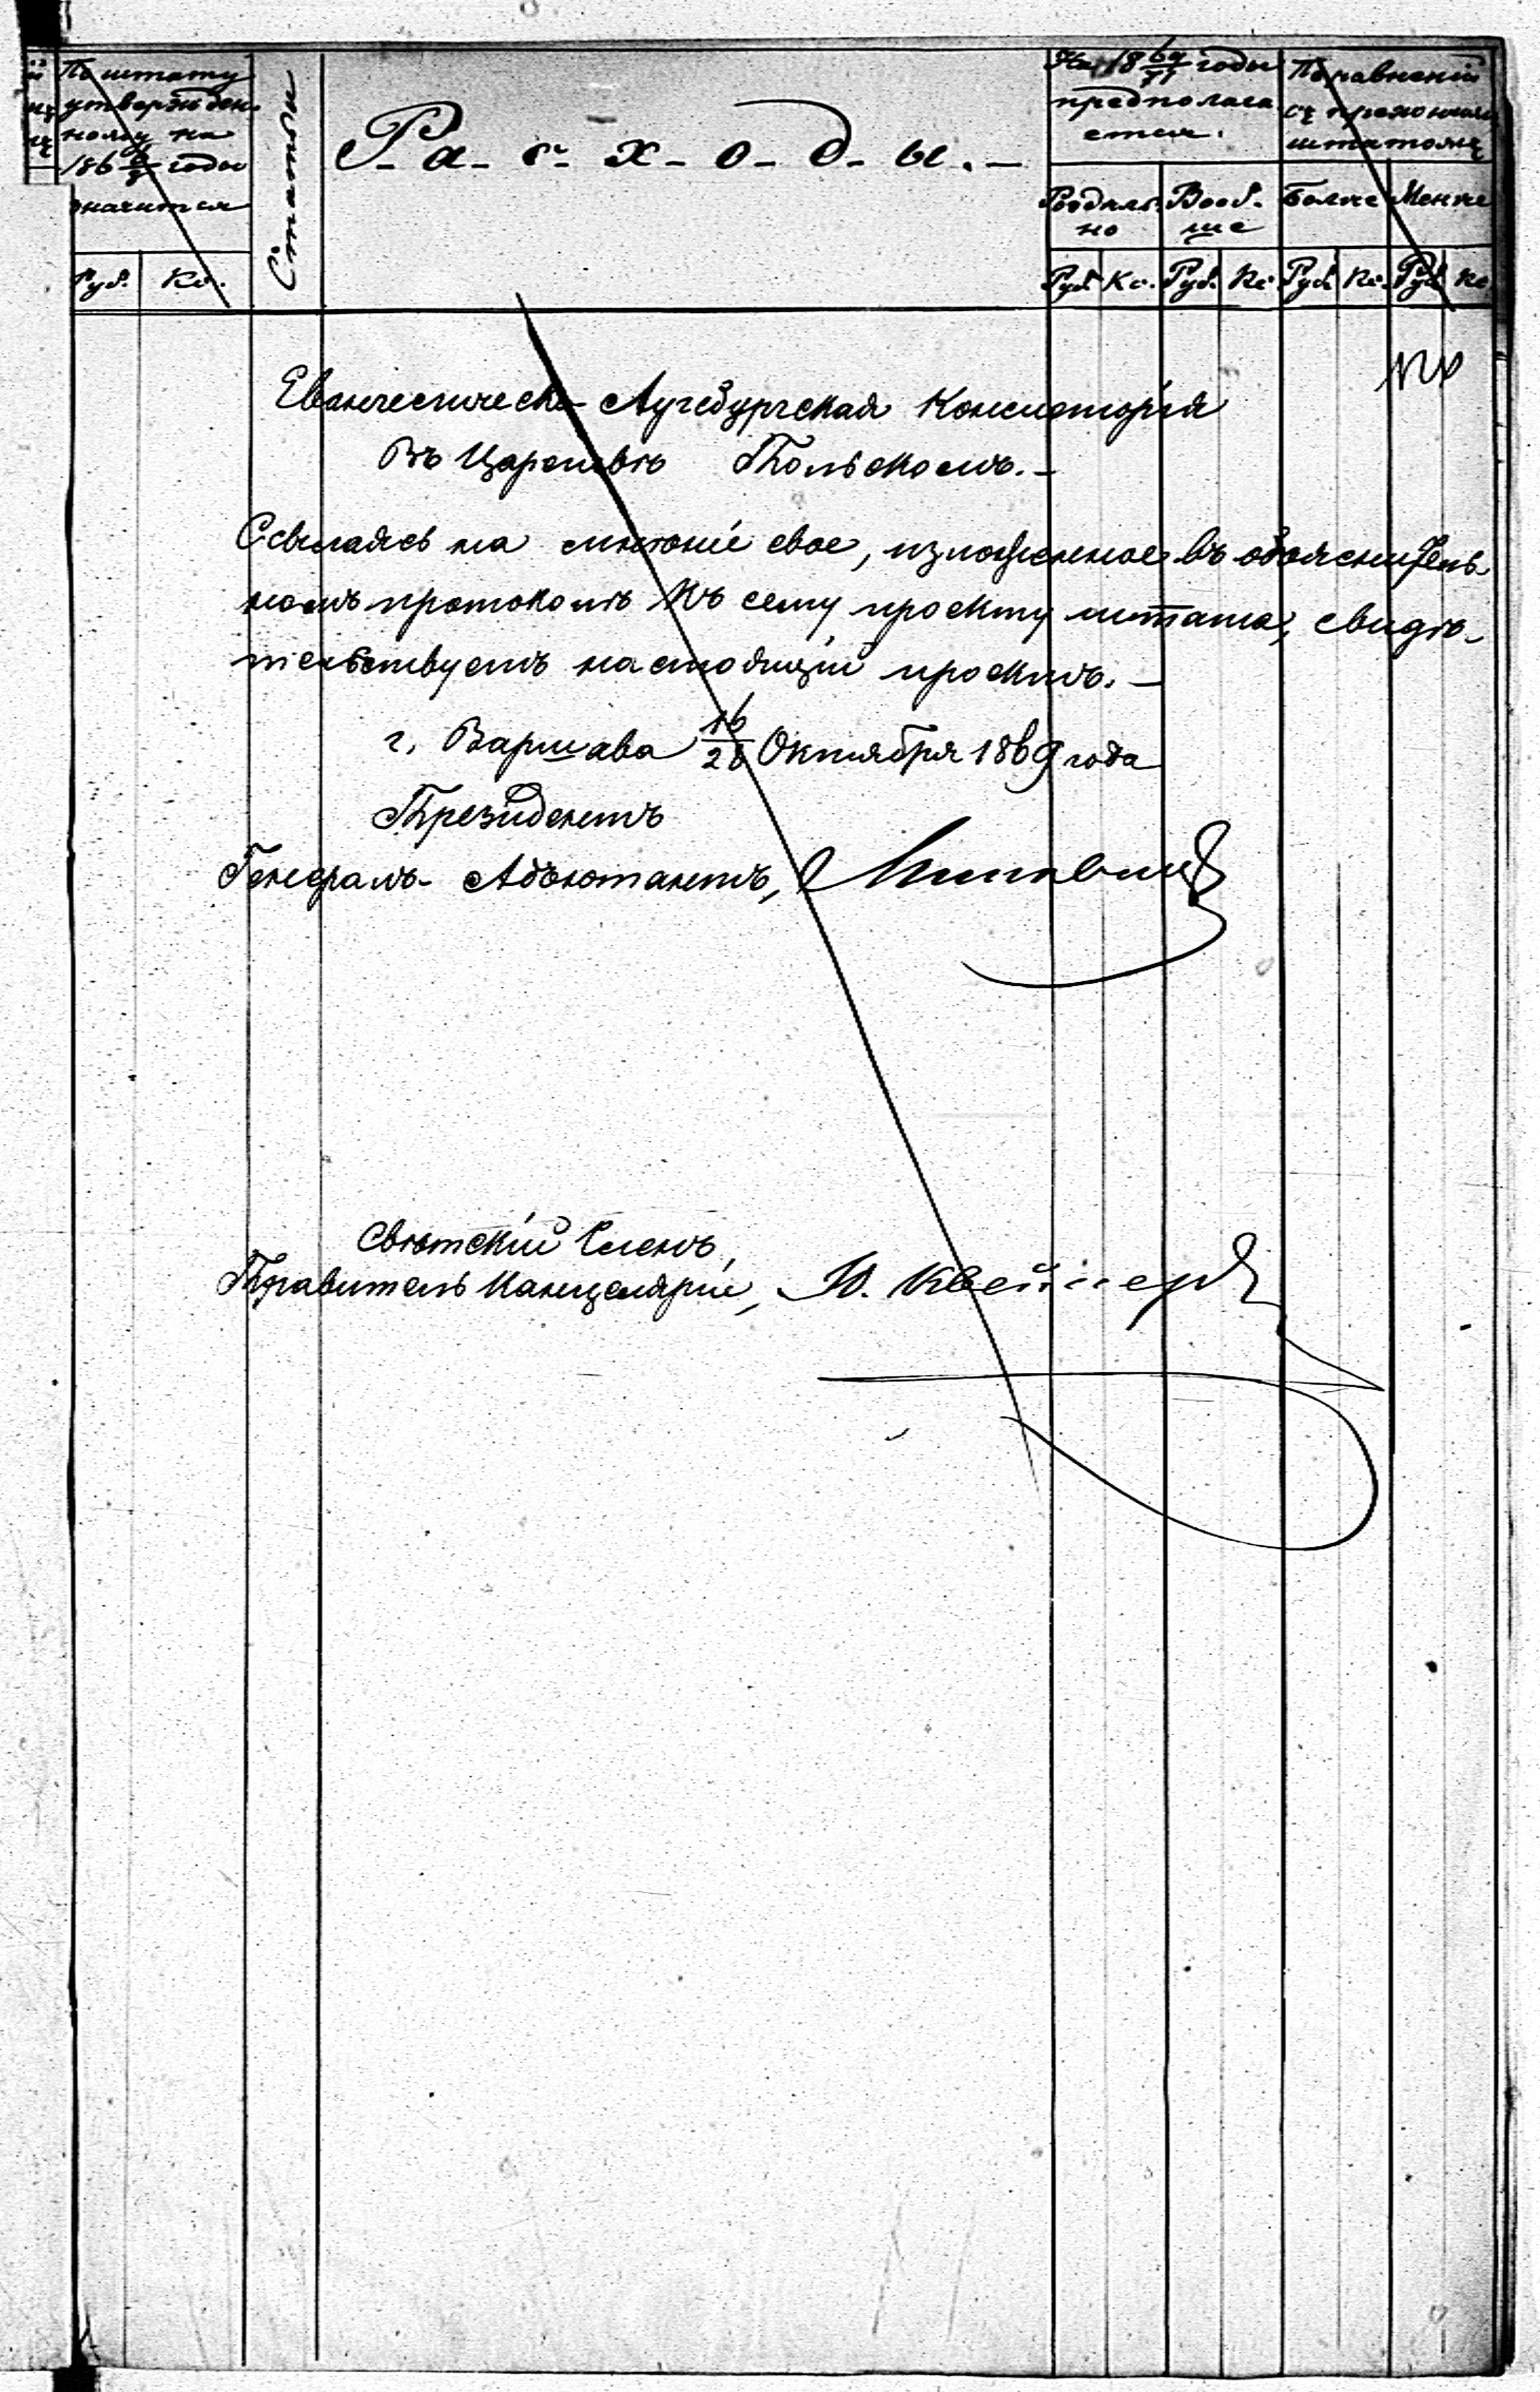 По штату
утвержден-
ному на
186 годы
значится
Руб. Ко.
Р-а-с-х-о-д-ы.-
На 18 69/71 годы
предполага
ется.
Роздель-
но
Вооб-
ще
По равненiю
съ прежнимъ
штатомъ
Болѣе Менѣе
Руб. Ко. Руб. Ко. Руб. Ко. Руб. Ко.
Евангелическо-Аугсбургская Консисторія
въ Царствѣ Польскомъ.-
Ссылаясь на мнѣніе свое, изложенное въ объяснитель-
номъ протоколѣ къ сему проекту штата, свидѣ-
тельствуетъ настоящій проектъ.-
г. Варшава 16/28 Октября 1869 года
Президентъ
Генералъ-Адъютантъ,
Свѣтскій Членъ,
Правитель Канцеляріи,